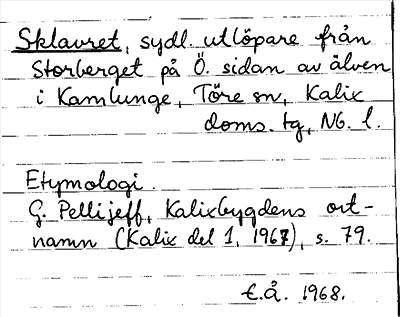 Sklavret, sydl. utlöpare från
Storberget på Ö. sidan av älven
i Kamlunge, Töre sn, Kalix
doms. tg, Nb. l.
Etymologi.
G. Pellijeff, Kalixbygdens ort-
namn (Kalix del 1, 1967), s. 79.
E.Å. 1968.